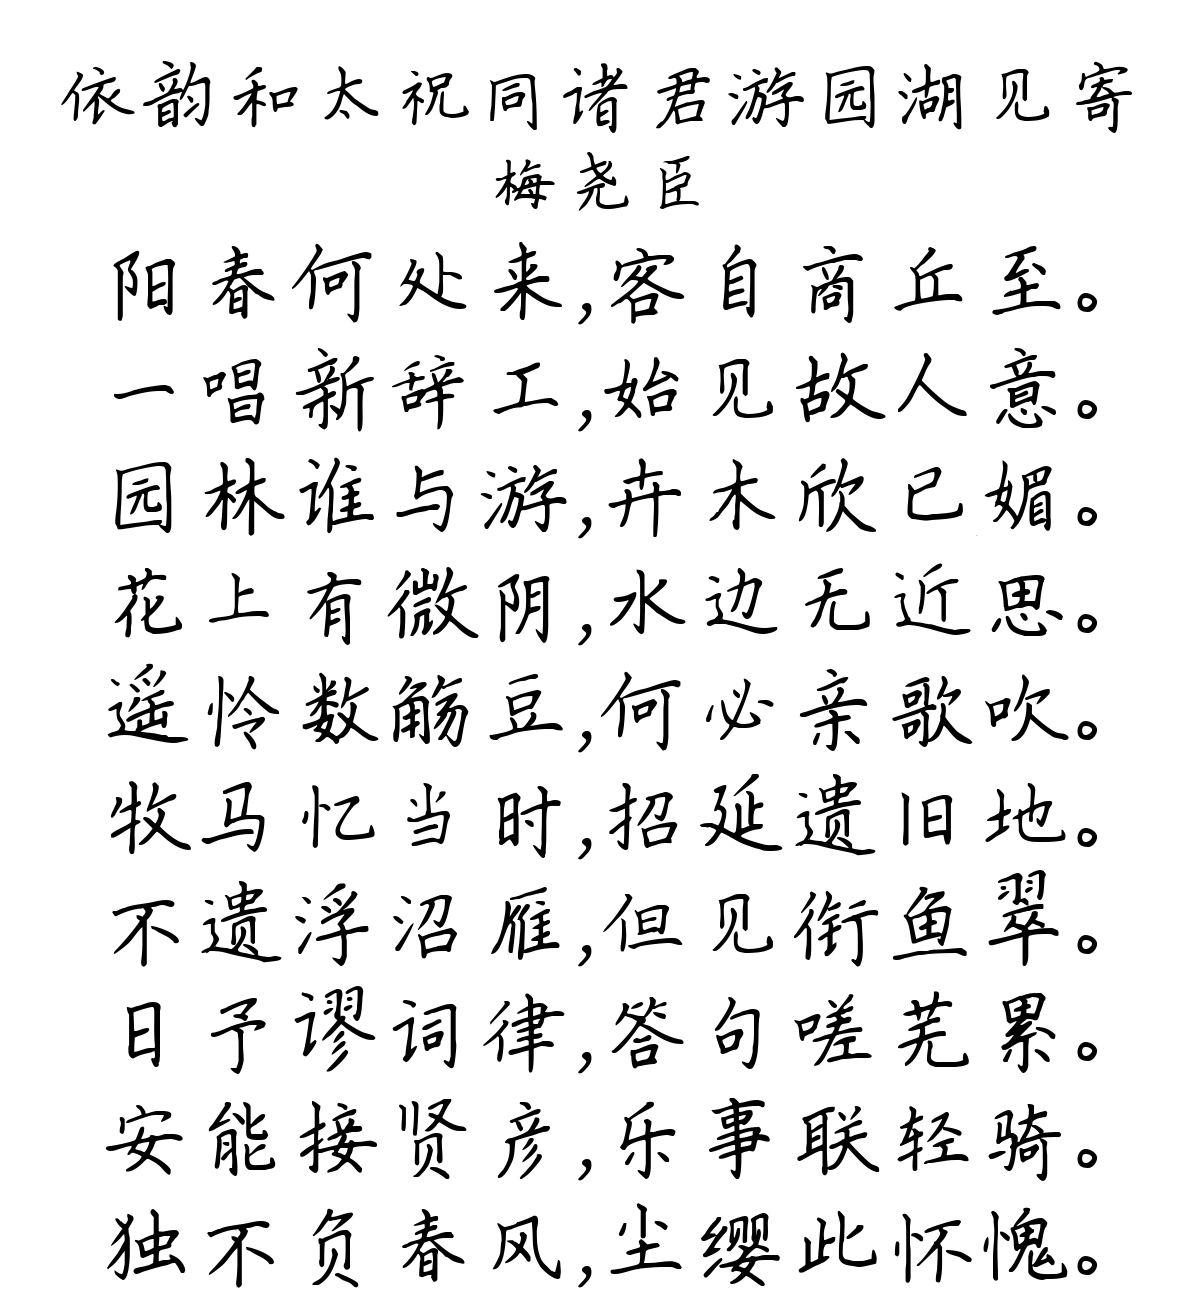 依韵和太祝同诸君游园湖见寄
梅尧臣
阳春何处来,客自商丘至。
一唱新辞工,始见故人意。
园林谁与游,卉木欣已媚。
花上有微阴,水边无近思。
遥怜数觞豆,何必亲歌吹。
牧马忆当时,招延遗旧地。
不遗浮沼雁,但见衔鱼翠。
日予谬词律,答句嗟芜累。
安能接贤彦,乐事联轻骑。
独不负春风,尘缨此怀愧。